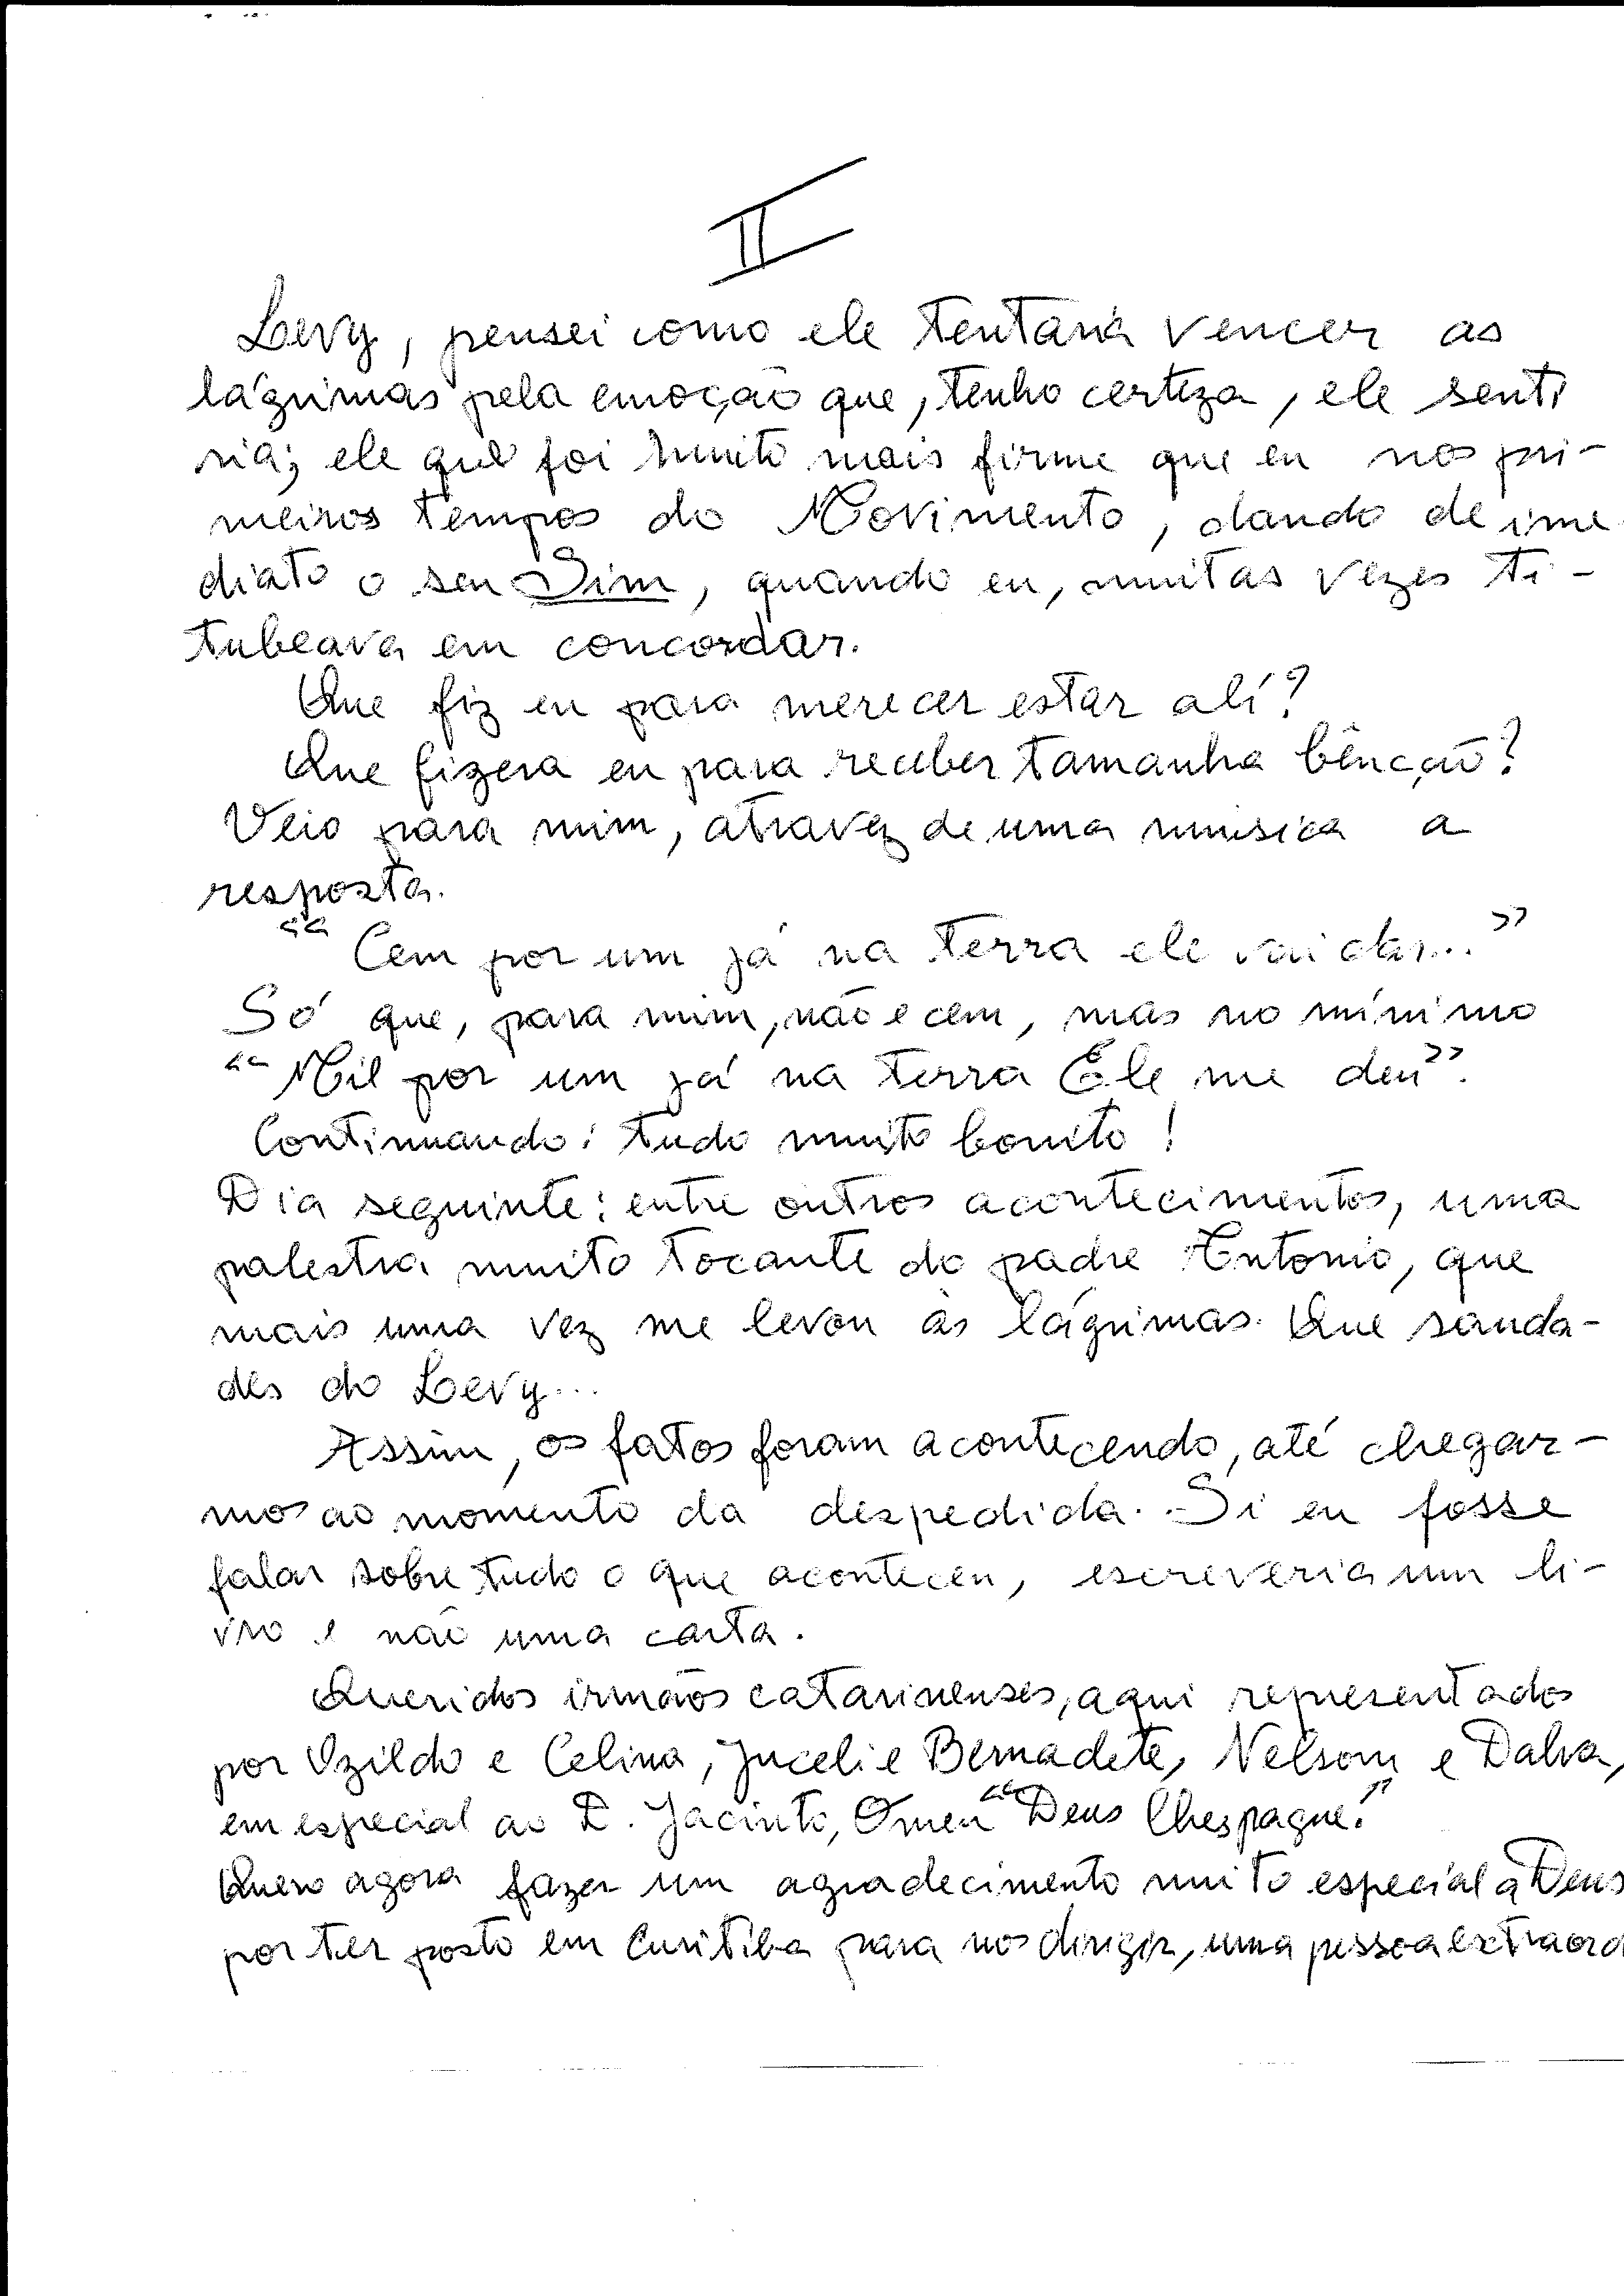 II
Levy, pensei como ele tentaria vencer as
lágrimas pela emoção que, tenho certeza, ele senti
ria; ele que foi muito mais firme que eu nos pri-
meiros tempos do Movimento, dando de ime
diato o seu Sim, quando eu, muitas vezes ti-
tubeava em concordar.
Que fiz eu para merecer estar alí?
Que fizera eu para receber tamanha bêncção?
Veio para mim, atravez de uma musica a
resposta.
"Cem por um já na terra ele vai dar..."
Só que, para mim, não e cem, mas no mínimo
"Mil por um já na terra Ele me deu".
Continuando: tudo muito bonito!
Dia seguinte: entre outros acontecimentos, uma
palestra muito tocante do padre Antonio, que
mais uma vez me levou às lágrimas. Que sauda-
des do Levy...
Assim, os fatos foram acontecendo, até chegar-
mos ao momento da despedida. Si eu fosse
falar sobre tudo o que aconteceu, escreveria um li-
vro e não uma carta.
Queridos irmãos catarinenses, aqui representados
por Ozildo e Celina, Juceli e Bernadete, Nelson e Dalva,
em especial ao D. Jacinto, O meu "Deus lhes pague!"
Quero agora fazer um agradecimento muito especial a Deus
por ter posto em Curitiba para nos dirigir, uma pessoa extraord